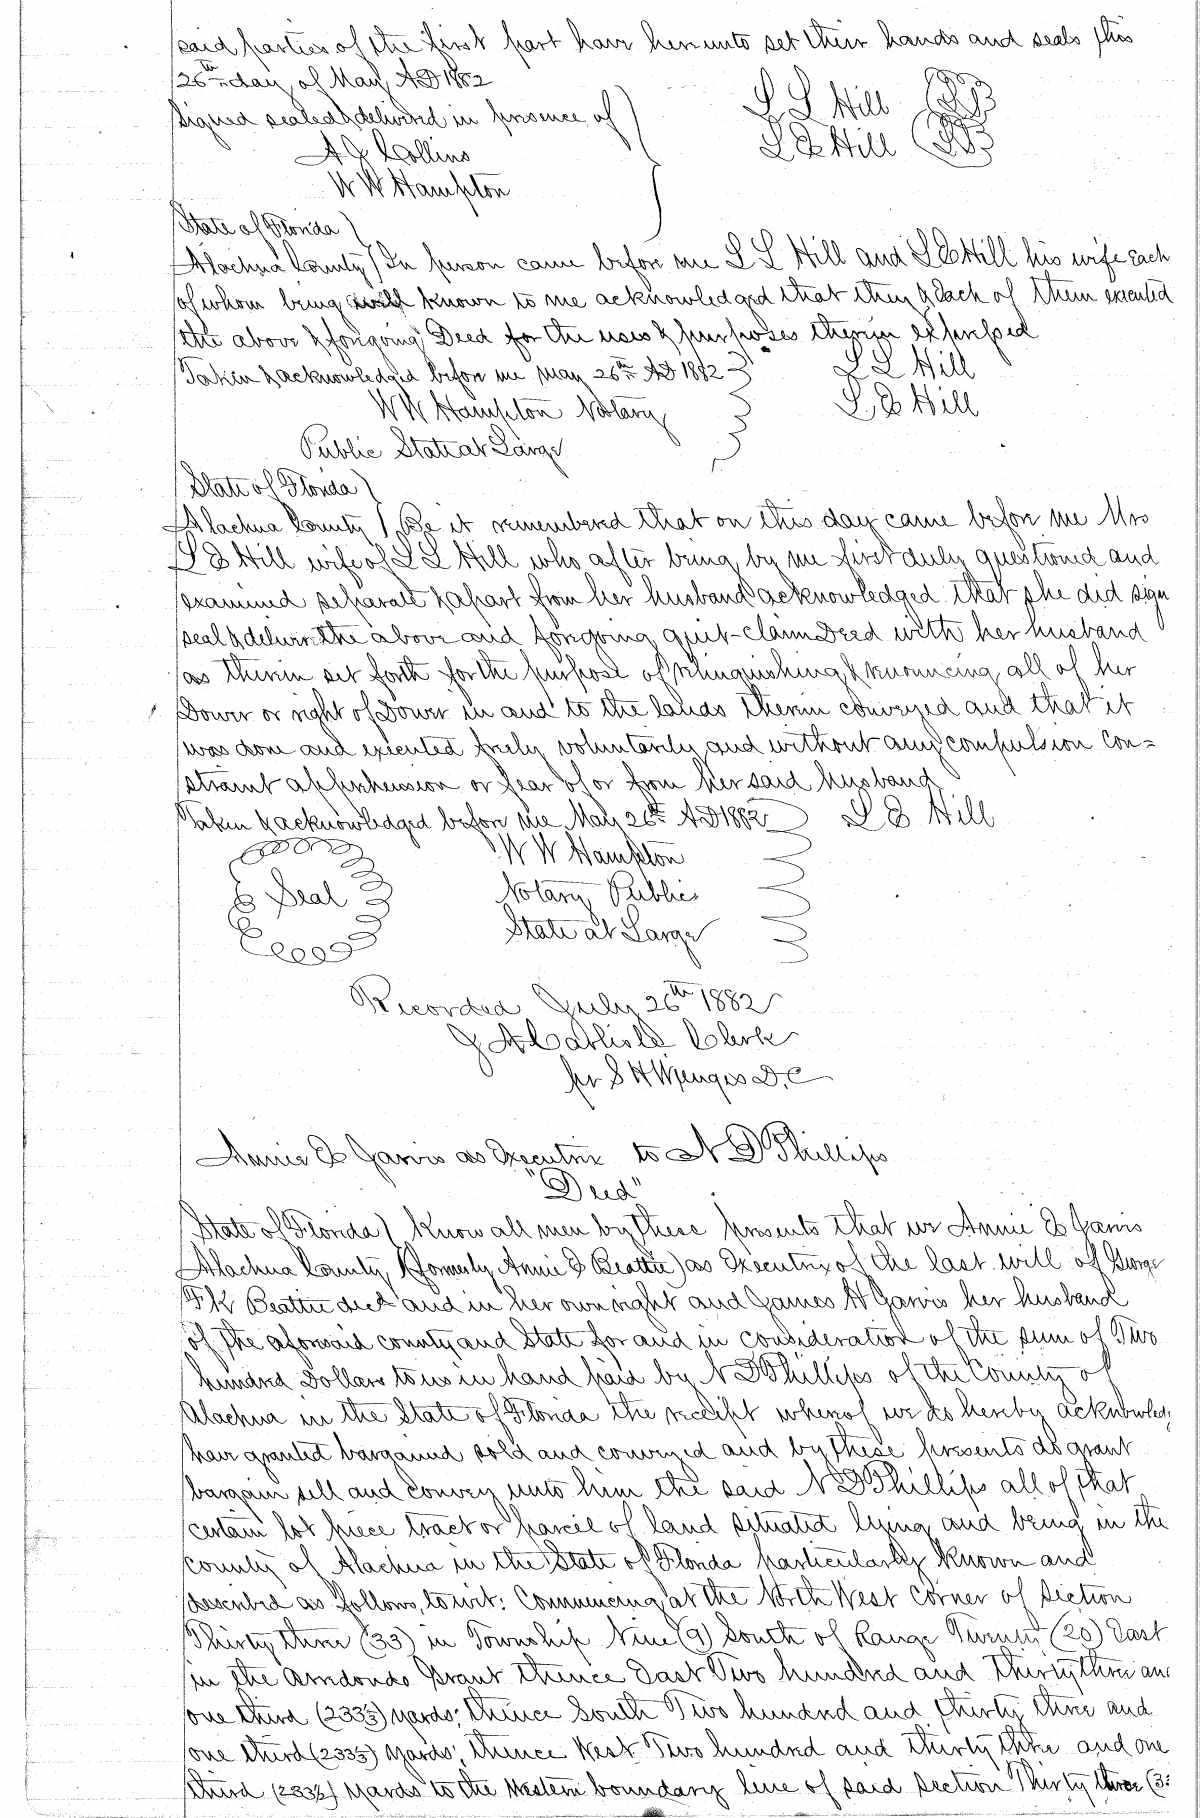 said parties of the first part have hereunto set their hands and seals this
26th day of May AD 1882
Signed sealed & delivered in presence of
L L Hill
L E Hill
A J Collins
W W Hampton
State of Florida
Alachua County In person came before me L L Hill and L E Hill his wife Each
of whom being well known to me acknowledged that they & Each of them executed
the above & foregoing Deed for the uses & purposes therein expressed
Taken & acknowledged before me May 26th AD 1882
L L Hill
W W Hampton Notary
L E Hill
Public State at Large
State of Florida
Alachua County Be it remembered that on this day came before me Mrs
L E Hill wife of L L Hill who after being by me first duly questioned and
examined separate & apart from her husband acknowledged that she did sign
seal & deliver the above and foregoing quit-claim Deed with her husband
as therein set forth for the purpose of relinquishing & renouncing all of her
Dower or right of Dower in and to the lands therein conveyed and that it
was done and executed freely voluntarily and without any compulsion con=
straint apprehension or fear of or from her said husband
Taken & acknowledged before me May 26th AD 1882 L E Hill
W W Hampton
Seal Notary Public
State at Large
Recorded July 26th 1882
J A Carlisle Clerk
per S H Wienges D.C
Annie E Jarvis as Executrix to N D Phillips
"Deed"
State of Florida Know all men by these presents that we Annie E Jarvis
Alachua County (formerly Annie E Beattie) as Executrix of the last will of George
F K Beattie decd and in her own right and James H Jarvis her husband
of the aforesaid county and State for and in consideration of the sum of Two
hundred Dollars to us in hand paid by N D Phillips of the County of
Alachua in the State of Florida the receipt whereof we do hereby acknowledg
have granted bargained sold and conveyed and by these presents do grant
bargain sell and convey unto him the said N D Phillips all of that
certain lot piece tract or parcel of land situated lying and being in the
county of Alachua in the State of Florida particularly known and
described as follows, to wit: Commencing at the North West corner of Section
Thirty three (33) in Township Nine (9) South of Range Twenty (20) East
in the Arredondo Grant thence East Two hundred and Thirty three an
one third (233⅓) yards; thence South Two hundred and thirty three and
one third (233⅓) yards; thence West Two hundred and thirty three and one
third (233⅓) yards to the Western boundary line of said section Thirty three (3